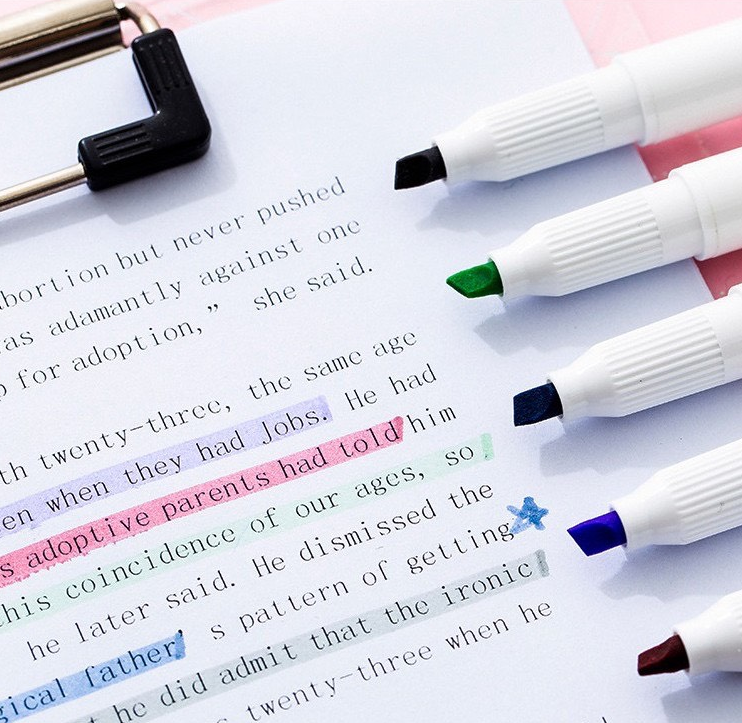 abortion but never pushed
as adamantly against one
p for adoption,” she said.
th twenty-three, the same age
en when they had Jobs. He had
s adoptive parents had told him
this coincidence of our ages, so
he later said. He dismissed the
s pattern of getting
gical father
t he did admit that the ironic
s twenty-three when he